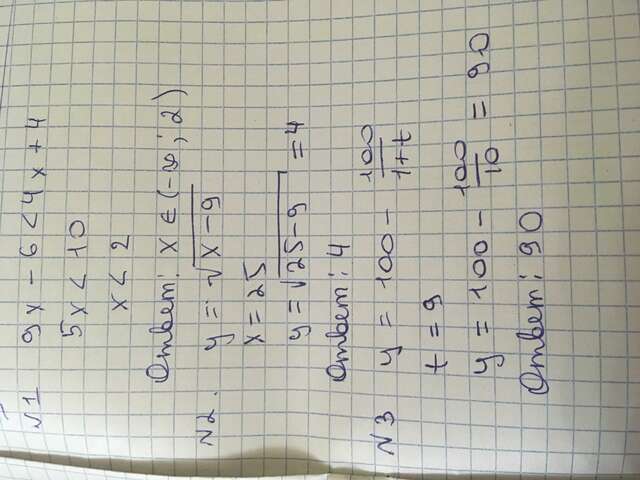 №1 9x - 6 < 4x + 4
5x < 10
x < 2
Ответ: x ∈ (-∞; 2)
№2. y = √(x-9)
x = 25
y = √(25-9) = 4
Ответ: 4
№3 y = 100 - 100/(1+t)
t = 9
y = 100 - 100/10 = 90
Ответ: 90